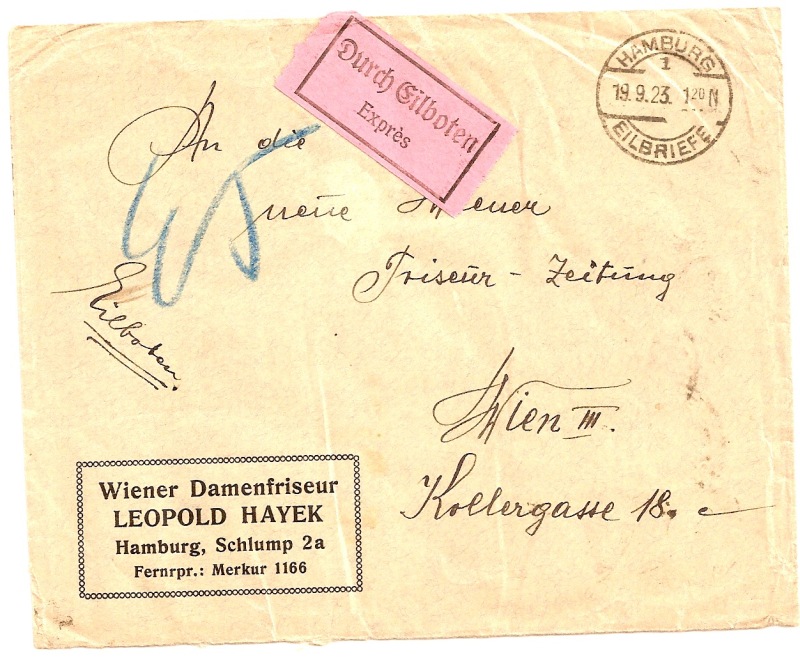 Durch Eilboten
Exprès
HAMBURG
1
19.9.23. 1 20 N
EILBRIEFE
An die
neue Wiener
Friseur - Zeitung
Eilboten.
Wien III.
Kollergasse 18.
Wiener Damenfriseur
LEOPOLD HAYEK
Hamburg, Schlump 2a
Fernrpr.: Merkur 1166